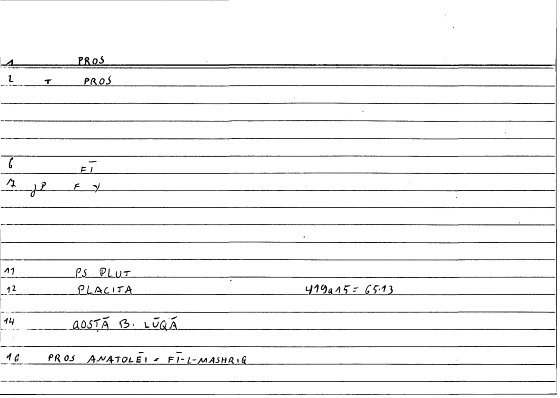 1 PROS
2 T PROS
6 FĪ
7 JP F Y
11 PS PLUT
12 PLACITA 419a15 = 65.13
14 QOSṬĀ B. LŪQĀ
16 PROS ANATOLĒI = FĪ-L-MASHRIQ